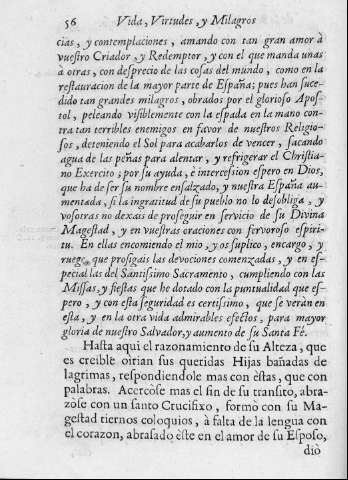 56 Vida, Virtudes, y Milagros
cias, y contemplaciones, amando con tan gran amor à
vuestro Criador, y Redemptor, y con el que manda unas
à otras, con desprecio de las cosas del mundo, como en la
restauracion de la mayor parte de España; pues han suce-
dido tan grandes milagros, obrados por el glorioso Apos-
tol, peleando visiblemente con la espada en la mano con-
tra tan terribles enemigos en favor de nuestros Religio-
sos, deteniendo el Sol para acabarlos de vencer, sacando
agua de las peñas para alentar, y refrigerar el Christia-
no Exercito; por su ayuda, è intercession espero en Dios,
que ha de ser su nombre ensalzado, y nuestra España au-
mentada, si la ingratitud de su pueblo no lo desobliga, y
vosotras no dexais de proseguir en servicio de su Divina
Magestad, y en vuestras oraciones con fervoroso espiri-
tu. En ellas encomiendo el mio, y os suplico, encargo, y
ruego que prosigais las devociones comenzadas, y en es-
pecial las del Santissimo Sacramento, cumpliendo con las
Missas, y fiestas que he dotado con la puntualidad que es-
pero, y con esta seguridad es certissimo, que se veràn en
esta, y en la otra vida admirables efectos, para mayor
gloria de nuestro Salvador, y aumento de su Santa Fè.
Hasta aqui el razonamiento de su Alteza, que
es creible oirian sus queridas Hijas bañadas de
lagrimas, respondiendole mas con èstas, que con
palabras. Acercòse mas el fin de su transito, abra-
zòse con un santo Crucifixo, formò con su Ma-
gestad tiernos coloquios, à falta de la lengua con
el corazon, abrasado èste en el amor de su Esposo,
diò